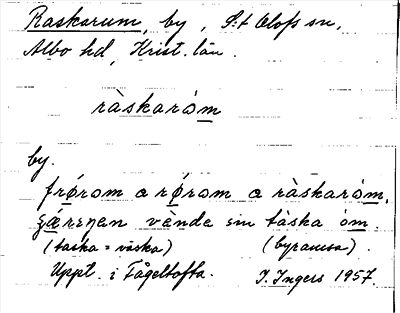 Raskarum, by, S:t Olofs sn,
Albo hd, Krist. län.
ràskaróm
by.
frǿrom a rǿrom a ràskaróm,
gǽrsŋen vènde sin tàska óm.
(taska = väska) (byramsa).
Uppt. i Fågeltofta. I. Ingers 1957.